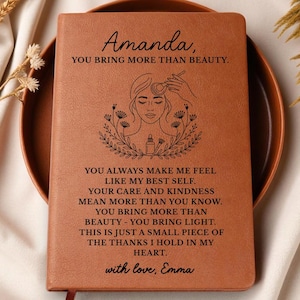 Amanda,
YOU BRING MORE THAN BEAUTY.
YOU ALWAYS MAKE ME FEEL
LIKE MY BEST SELF.
YOUR CARE AND KINDNESS
MEAN MORE THAN YOU KNOW.
YOU BRING MORE THAN
BEAUTY - YOU BRING LIGHT.
THIS IS JUST A SMALL PIECE OF
THE THANKS I HOLD IN MY
HEART.
with love, Emma